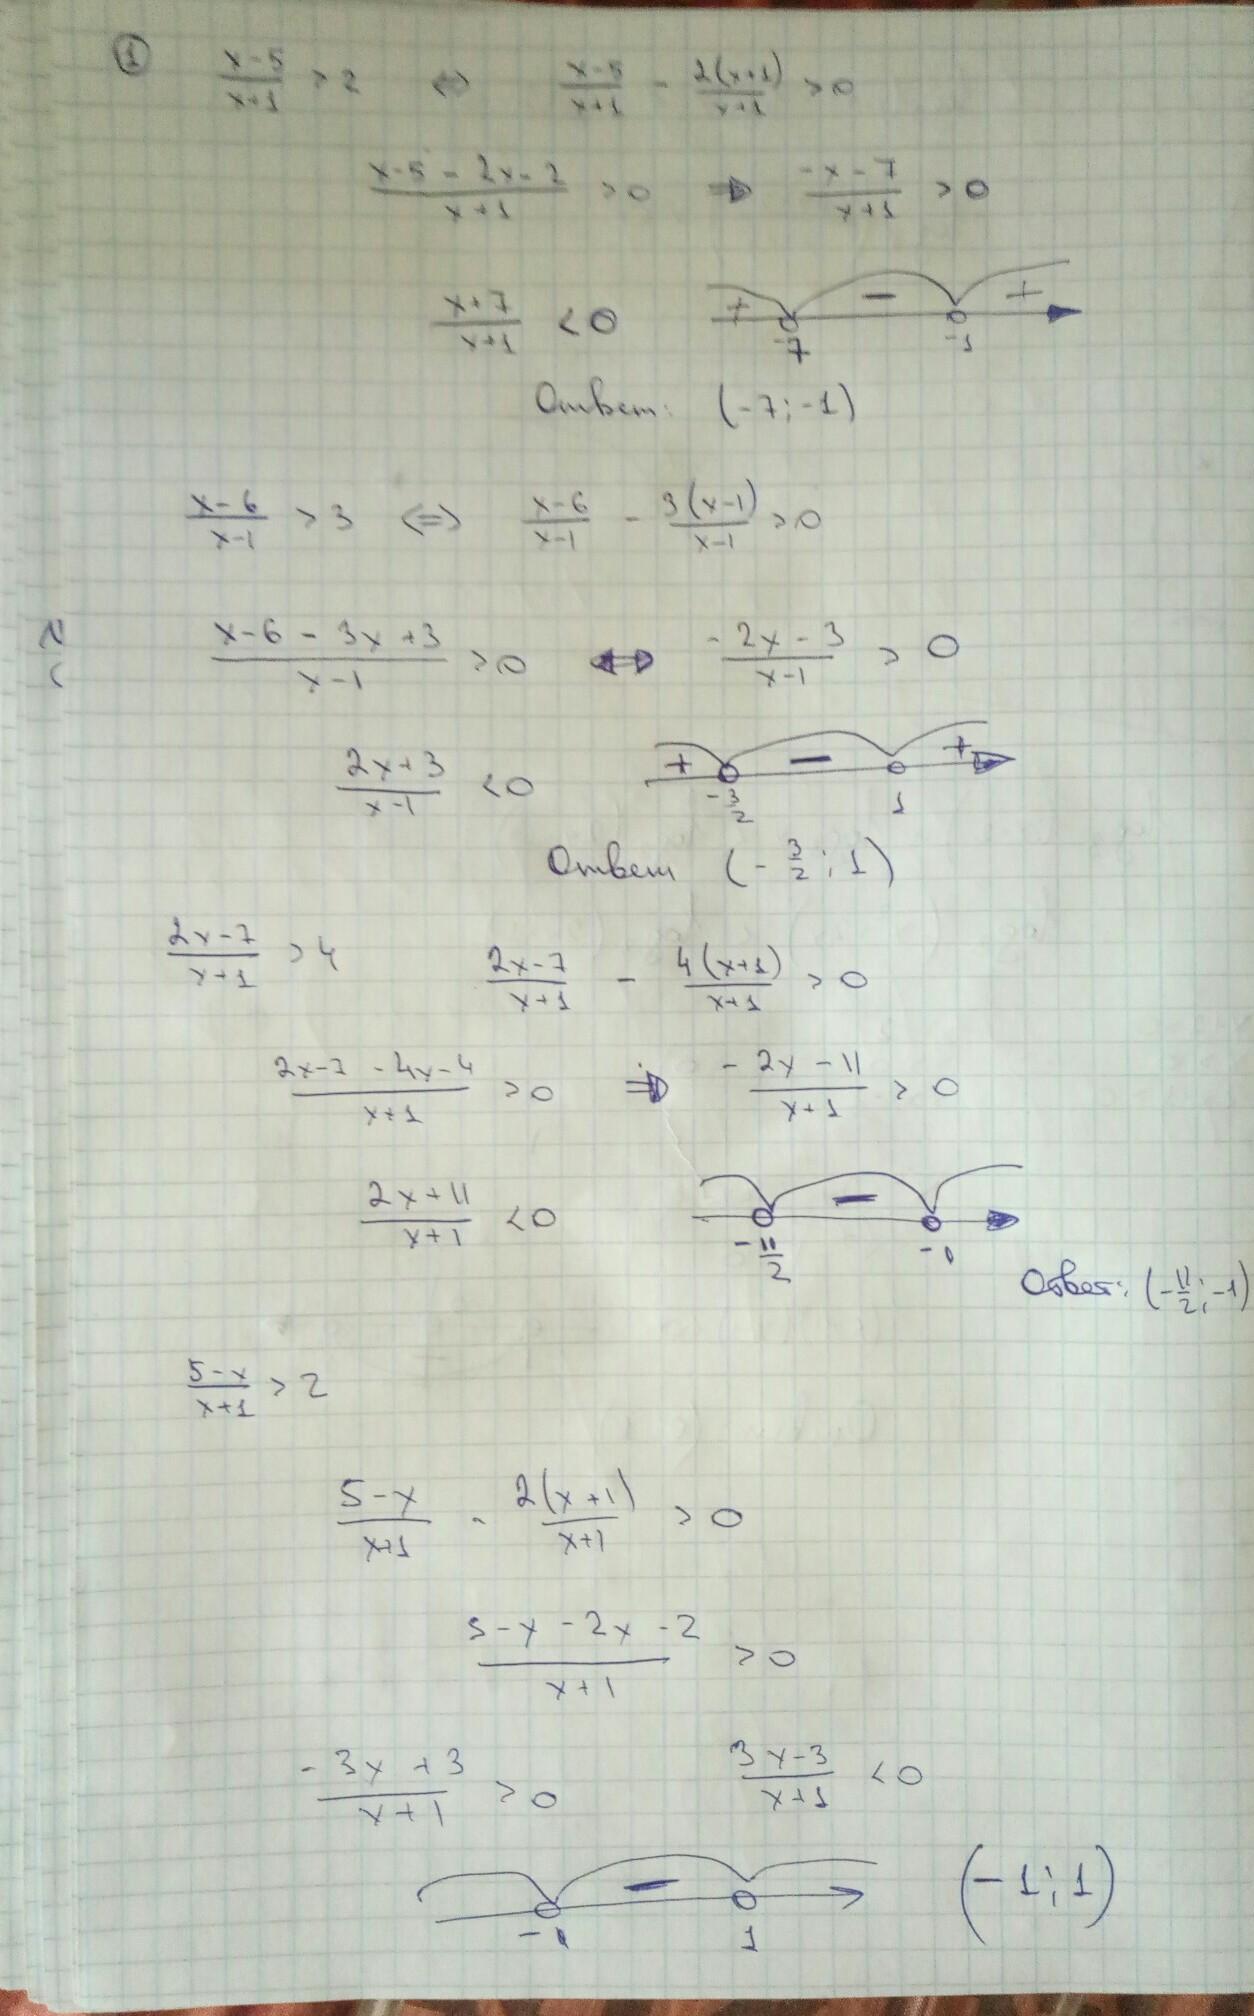 ① (x-5)/(x+1) > 2 ⇔ (x-5)/(x+1) - 2(x+1)/(x+1) > 0
(x-5-2x-2)/(x+1) > 0 ⇒ (-x-7)/(x+1) > 0
(x+7)/(x+1) < 0 + - +
-7 -1
Ответ: (-7; -1)
(x-6)/(x-1) > 3 ⇔ (x-6)/(x-1) - 3(x-1)/(x-1) > 0
(x-6-3x+3)/(x-1) > 0 ⇔ (-2x-3)/(x-1) > 0
(2x+3)/(x-1) < 0 + - +
-3/2 1
Ответ (-3/2; 1)
(2x-7)/(x+1) > 4 (2x-7)/(x+1) - 4(x+1)/(x+1) > 0
(2x-7-4x-4)/(x+1) > 0 ⇒ (-2x-11)/(x+1) > 0
(2x+11)/(x+1) < 0 -
-11/2 -1
Ответ: (-11/2; -1)
(5-x)/(x+1) > 2
(5-x)/(x+1) - 2(x+1)/(x+1) > 0
(5-x-2x-2)/(x+1) > 0
(-3x+3)/(x+1) > 0 (3x-3)/(x+1) < 0
- (-1; 1)
-1 1